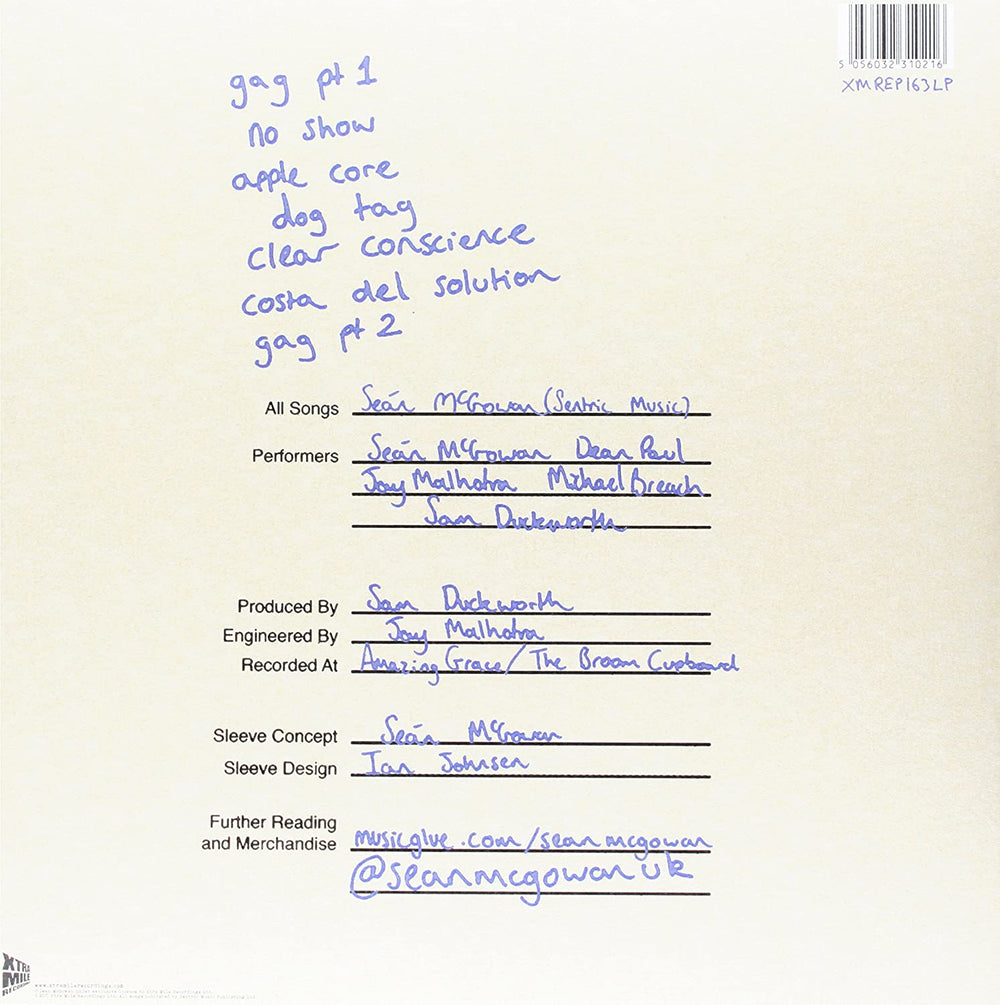 5 056032 310216
XMREP163LP
gag pt 1
no show
apple core
dog tag
clear conscience
costa del solution
gag pt 2
All Songs Seán McGowan (Sentric Music)
Performers Seán McGowan Dean Paul
Jay Malhotra Michael Breach
Sam Duckworth
Produced By Sam Duckworth
Engineered By Jay Malhotra
Recorded At Amazing Grace/The Broom Cupboard
Sleeve Concept Seán McGowan
Sleeve Design Ian Johnsen
Further Reading
and Merchandise musicglue.com/seanmcgowan
@seanmcgowanuk
XTRA
MILE
RECORDINGS
www.xtramilerecordings.com